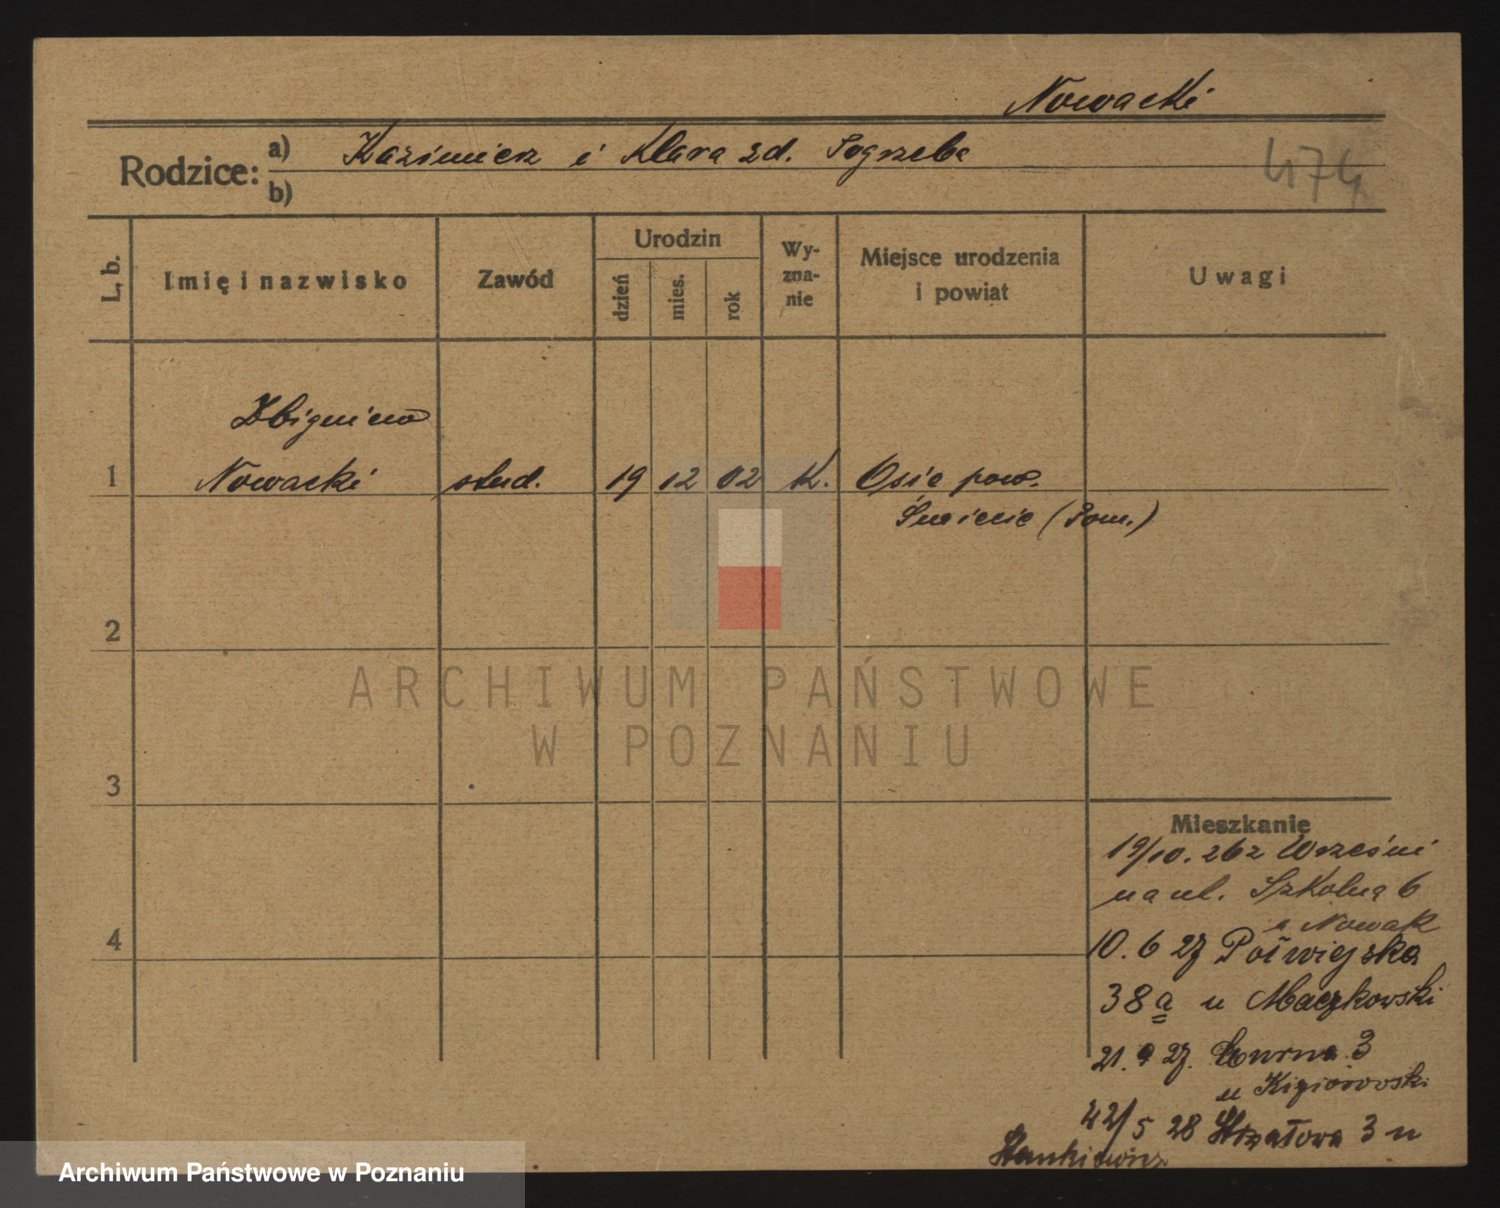 Nowacki
Rodzice: a) Kazimierz i Klara zd. Pogrzeba
b)
474
L. b. Imię i nazwisko Zawód Urodzin dzień mies. rok Wyzna-nie Miejsce urodzenia i powiat Uwagi
Zbigniew
1 Nowacki stud. 19 12 02 K. Osie pow.
Świecie (Pom.)
2
ARCHIWUM PAŃSTWOWE
W POZNANIU
3
Mieszkanie
19/10. 26 z Wrześni
na ul. Szkolną 6
u Nowak
4
10. 6 27 Półwiejska
38 a u Maczkowski
21. 9 27. 3
u
5 28 Strzałowa 3 u
Stankiewicz
Archiwum Państwowe w Poznaniu